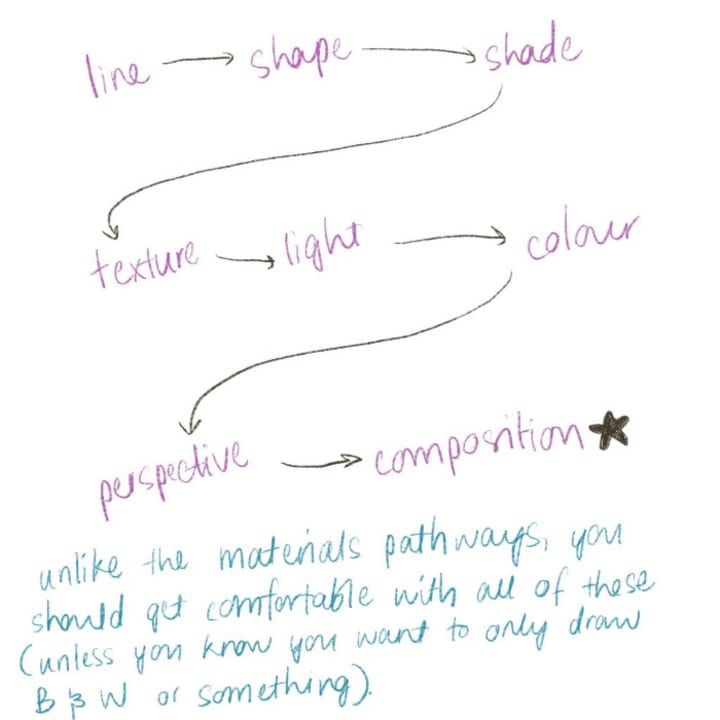 line → shape → shade
texture → light → colour
perspective → composition ★
unlike the materials pathways, you
should get comfortable with all of these
(unless you know you want to only draw
B & W or something).